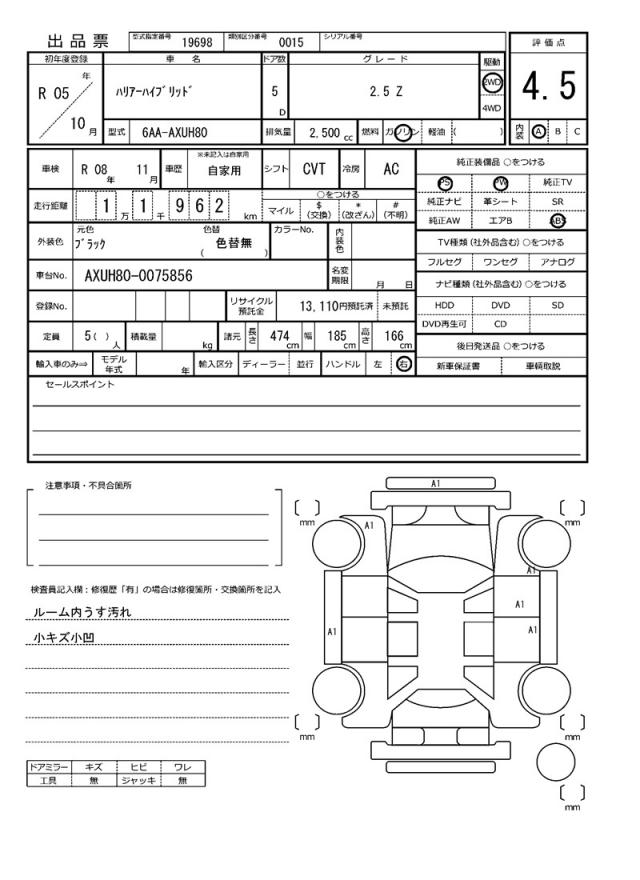 出品票
型式指定番号 19698 類別区分番号 0015 シリアル番号
評価点
4.5
内装 A B C
初年度登録 車名 ドア数 グレード 駆動
R 05 年 10 月
ハリアーハイブリッド 5 D 2.5 Z 2WD 4WD
型式 6AA-AXUH80 排気量 2,500 cc 燃料 ガソリン 軽油 ( )
車検 R 08 年 11 月 車歴 ※未記入は自家用 自家用 シフト CVT 冷房 AC
走行距離 1 万 1 千 9 6 2 km
○をつける
マイル $(交換) *(改ざん) #(不明)
外装色 元色 ブラック 色替 色替無 ( ) カラーNo. 内装色
車台No. AXUH80-0075856 名変期限 月 日
登録No. リサイクル預託金 13,110円預託済 未預託
定員 5( ) 人 積載量 kg 諸元 長さ 474 cm 幅 185 cm 高さ 166 cm
輸入車のみ⇒ モデル年式 年 輸入区分 ディーラー 並行 ハンドル 左 右
純正装備品 ○をつける
PS PW 純正TV
純正ナビ 革シート SR
純正AW エアB ABS
TV種類(社外品含む)○をつける
フルセグ ワンセグ アナログ
ナビ種類(社外品含む)○をつける
HDD DVD SD
DVD再生可 CD
後日発送品 ○をつける
新車保証書 車輌取説
セールスポイント
注意事項・不具合箇所
検査員記入欄:修復歴「有」の場合は修復箇所・交換箇所を記入
ルーム内うす汚れ
小キズ小凹
ドアミラー キズ ヒビ ワレ
工具 無 ジャッキ 無
A1
mm mm
A1
A1
A1
A1 A1
mm mm
mm